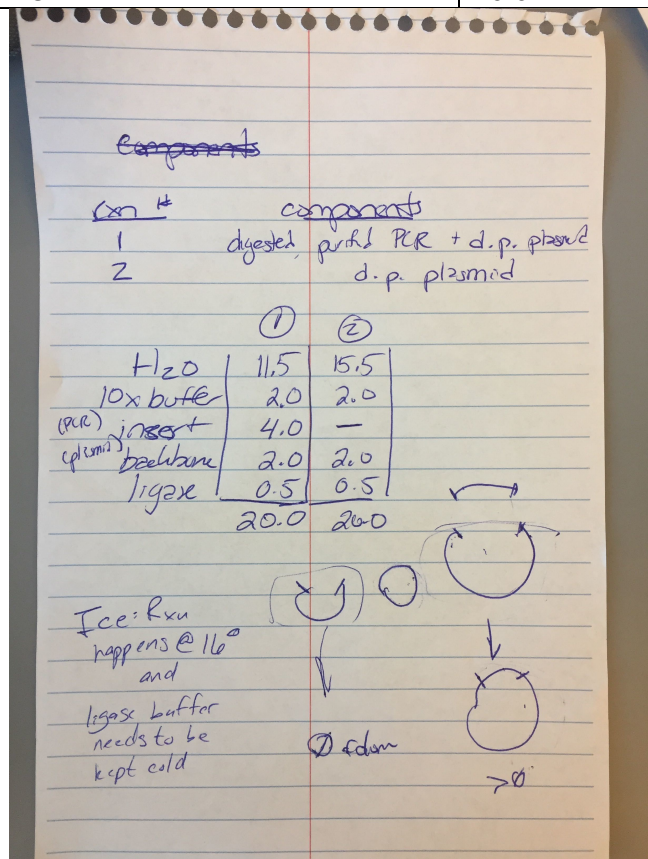 Components
rxn #
components
1 digested, purifid PCR + d.p. plasmid
2 d.p. plasmid
① ②
H2O 11.5 15.5
10x buffer 2.0 2.0
(PCR) insert 4.0 —
(plasmid) backbone 2.0 2.0
ligase 0.5 0.5
20.0 20.0
Ice: Rxn
happens @ 16°
and
ligase buffer
needs to be
kept cold
>0